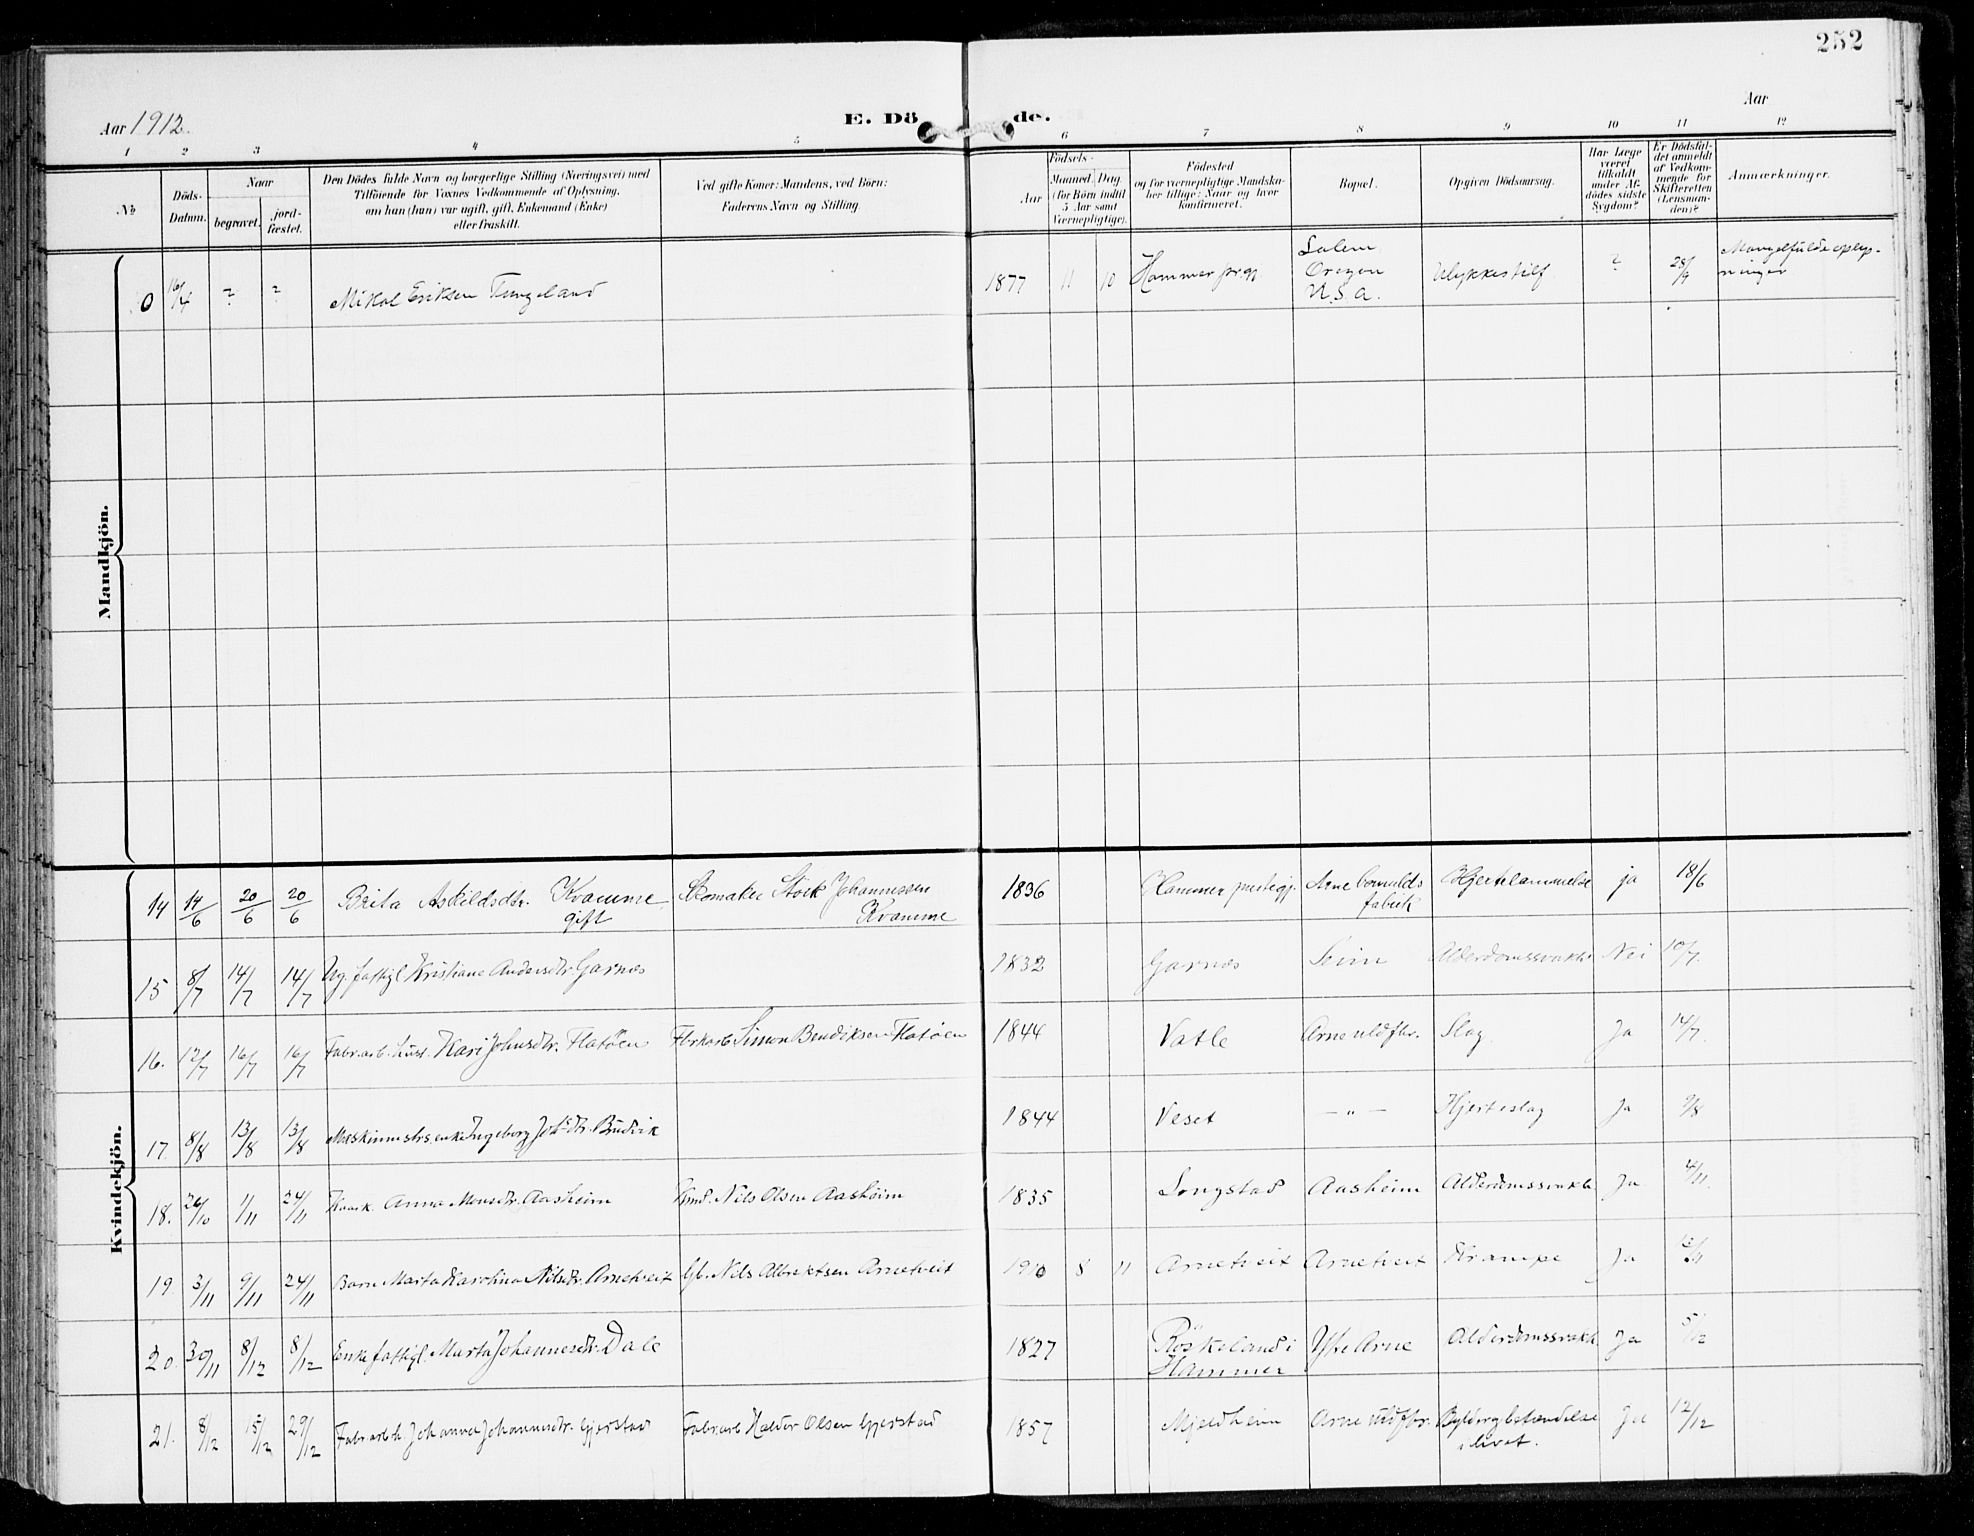 252
Aar 1912.
E. Dö de.
Aar
1 2 3 4 5 6 7 8 9 10 11 12
№
Döds-Datum.
Naar
begravet.
jord-fæstet.
Den Dödes fulde Navn og borgerlige Stilling (Næringsvei) med
Tilföiende for Voxnes Vedkommende af Oplysning,
om han (hun) var ugift, gift, Enkemand (Enke)
eller fraskilt.
Ved gifte Koner: Mandens, ved Börn:
Faderens Navn og Stilling.
Födsels-
Aar
Maaned. Dag
(for Börn indtil
5 Aar samt
Værnepligtige).
Födested
og for værnepligtige Mandska-
ber tillige: Naar og hvor
konfirmeret.
Bopæl.
Opgiven Dödsaarsag.
Har Læge
været
tilkaldt
under Af-
dödes sidste
Sygdom?
Er Dödsfal-
det anmeldt
af Vedkom-
mende for
Skifteretten
(Lensman-
den)?
Anmærkninger.
Mandkjön.
0 16/4 ? ? Mikal Eriksen Tungeland 1877 11 10 Hammer prgj. Salem Oregon U.S.A. Ulykkestilf. ? 28/9 Mangelfulde oplys-
ninger
Kvindekjön.
14 14/6 20/6 20/6 Brita Askildsdtr. Kvamme gift Stork Johannessen Kvamme 1836 Hammer prestegj. Arne fabrik Hjertelammelse ja 18/6
15 8/7 14/7 14/7 Ug. fattigl Kristiane Andersdtr Garnæs 1832 Garnæs Seim Alderdomssvakh. Nei 10/7.
16. 12/7 16/7 16/7 Fabr.arb. hust. Kari Johnsdtr. Flatöen Simon Bendiksen Flatöen 1844 Vatle Arne uldfbr. Slag. Ja 14/7.
17 8/8 13/8 13/8 Maskinmstrs.enke Ingeborg Johsdtr. Brudvik 1844 Veset — " — Hjerteslag Ja 9/8
18. 26/10 1/11 24/11 Anna Monsdtr. Aasheim Nils Olsen Aasheim 1835 Songstad Aasheim Alderdomssvakh Ja 4/11.
19. 3/11 9/11 24/11 Barn Marta Karolina Nilsdtr. Arnetveit Gb. Nils Albrektsen Arnetveit 1910 8 11 Arnetveit Arnetveit Krampe Ja
20. 30/11 8/12 8/12 Enke fattigl. Marta Johannesdtr. Dale 1827 Röskeland i Hammer Ytre Arne Alderdomssvakh. Ja 5/12
21. 8/12 15/12 29/12 Fabr.arb.h. Johanna Johannesdtr. Gjerstad Fabr.arb Haldor Olsen Gjerstad 1857 Mjeldheim Arne uldfbr. Byldorg betændelse
i livet. Ja 12/12